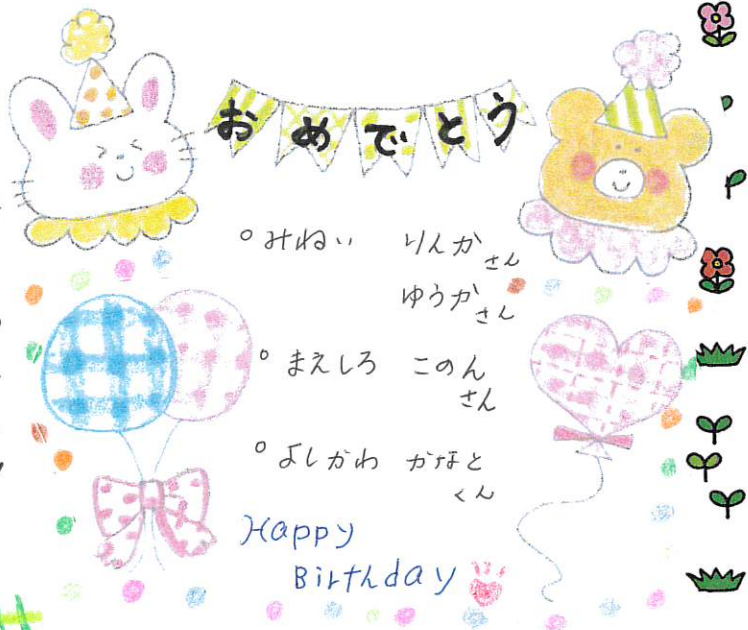 おめでとう
○みねい りんかさん
ゆうかさん
○まえしろ このん
さん
○よしかわ かなと
くん
Happy
Birthday